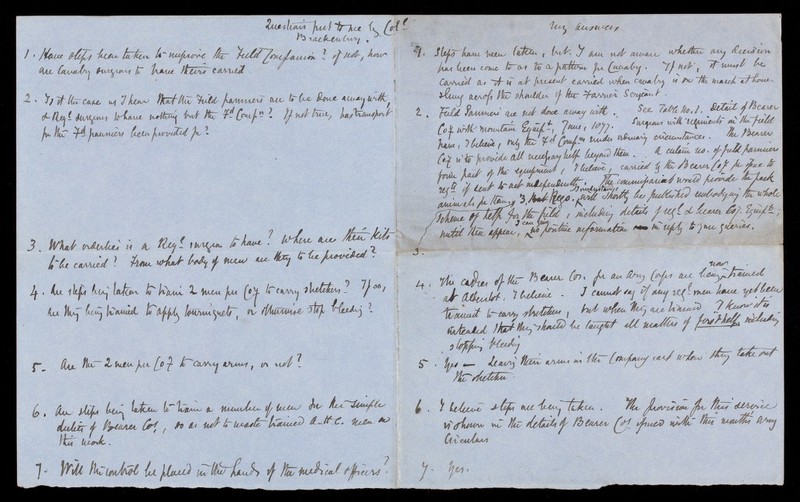 Questions put to me by Colˡ
Brackenbury.
1. Have steps been taken to improve the Field Companion? If not, how
are Cavalry surgeons to have theirs carried
2. Is it the case as I hear that the Field panniers are to be done away with,
& Regˡ surgeons to have nothing but the Fᵈ Compⁿ? If not true, has transport
for the Fᵈ panniers been provided for?
3. What orderlies is a Regˡ surgeon to have? Where are their kits
to be carried? From what body of men are they to be provided?
4. Are steps being taken to train 2 men per Coy to carry stretchers? If so,
are they being trained to apply tourniquets, or otherwise stop bleeding?
5 - Are the 2 men per Coy to carry arms, or not?
6. Are steps being taken to train a number of men in the simple
duties of Bearer Coˢ, so as not to waste trained A.H.C. men on
this work.
7 - Will the control be placed in the hands of the medical officers?
My answers
1. Steps have been taken, but I am not aware whether any decision
has been come to as to a pattern for Cavalry. If not, it must be
carried as it is at present carried when cavalry is on the march at home.
slung across the shoulder of the Farrier Sergeant.
2. Field Panniers are not done away with. See Table No. 1. Detail of Bearer
Coy with mountain Equipᵗ, June, 1877. Surgeons with regiments in the field
have, I believe, only the Fd Compⁿˢ under ordinary circumstances. The Bearer
Coy is to provide all necessary help beyond them. A certain no. of field panniers
form part of the equipment, I believe, carried by the Bearer Coy for issue to
regᵗˢ if sent to act independently. The commissariat would provide the pack
animals for them. Regˢ. will shortly be published embodying the whole
scheme of help for the field, including details of regˡ & bearer Coy. Equipᵗˢ;
until these appear, I can give no positive information in reply to your queries.
3.
4. The cadres of the Bearer Cos. for an Army Corps are now being trained
at Aldershot. I believe. I cannot say if any regˡ men have yet been
trained to carry stretchers, but when they are trained I know it is
intended that they should be taught all matters of first help including
stopping bleeding
5. Yes - leaving their arms in the Company cart when they take out
the stretcher.
6. I believe steps are being taken. The provision for this service
is shown in the details of Bearer Cos issued with this month's Army
Circulars
7. Yes.